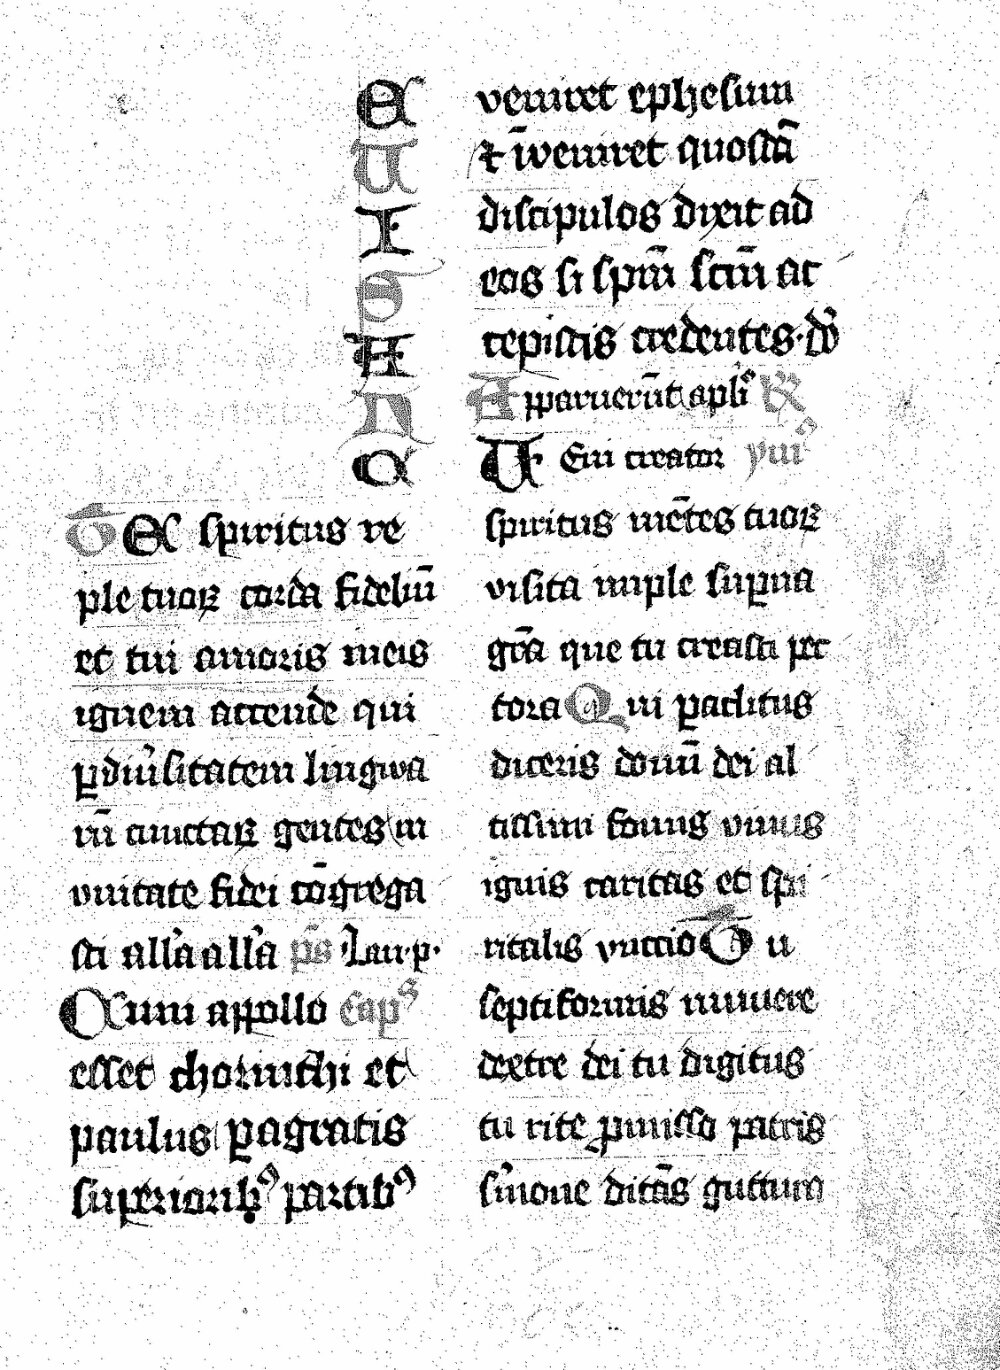 E
U
I
S
A
N
C
TE spiritus re
ple tuoꝝ corda fideliū
et tui amoris in eis
ignem accende qui
ꝑ diu̾sitatem lingwa
rū cunctaꝝ gentes in
vnitate fidei cōgrega
sti all̾a all̾a p̄s Lau.p.
Cum appollo cap⁹
esset chorinthi et
paulus ꝑagratis
superiorib⁹ partib⁹
veniret ephesum
⁊ īveniret quosdā
discipulos dixit ad
eos si spm̄ scm̄ ac
cepistis credentes.
Apparuerūt apl̾i
Veni creator ymꝰ
spiritus mētes tuoꝝ
visita imple suꝑna
gr̄a que tu creasti pec
tora Qui ꝑaclitus
diceris donū dei al
tissimi fons viuus
ignis caritas et spi
ritalis vnctio Tu
septiformis munere
dextre dei tu digitus
tu rite ꝓmisso patris
s̾mone ditās guttura